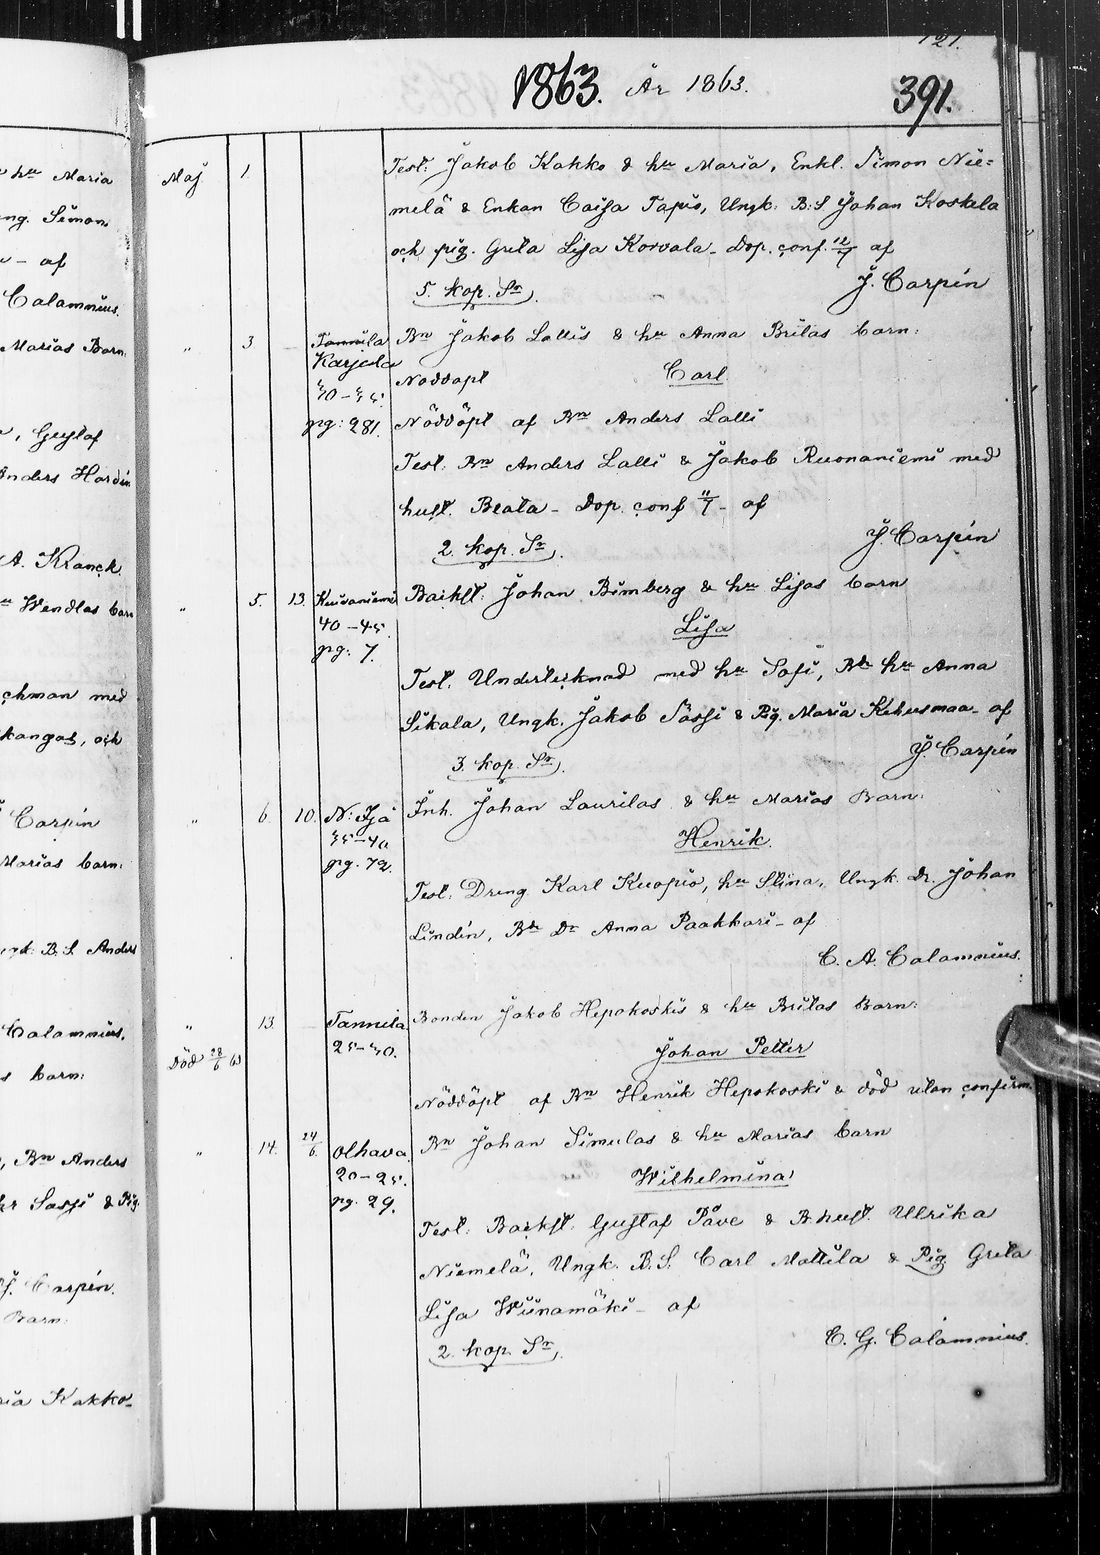 121.
1863. År 1863. 391.
Maj. 1. Test: Jakob Kakko & hu Maria, Enkl. Simon Nie=
melä & Enkan Caisa Tapio, Ungk. B.S Johan Koskela
och pig. Greta Lisa Korvala - Dop. conf. af
5. kop. Sr. J. Carpén
" 3 Tannila Bn Jakob Lallis & hu Anna Britas barn:
Karjala
Nöddöpt Carl
30-35.
pg: 281. Nöddöpt af Bn Anders Lalli
Test. Bn Anders Lalli & Jakob Ruonaniemi med
hust. Beata - Dop. conf 11/7 - af
2. kop. Sr. J. Carpén
" 5. 13. Kuivaniemi Backst. Johan Bimberg & hu Lisas barn
40-45. Lisa
pg: 7.
Test. Undertecknad med hu Sofi, Bde hu Anna
Sikala, Ungk. Jakob Sassi & Pig. Maria Kehusmaa - af
3. kop. Sr. J. Carpén
" 6. 10. N. Ijå Inh. Johan Laurilas & hu Marias Barn:
35-40 Henrik.
pg. 72.
Test. Dreng Karl Kuopio, hu Stina, Ungk. Dr. Johan
Lindén, Bde Dr Anna Paakkari - af
C. A. Calamnius.
" 13. Tannila Bonden Jakob Hepokoskis & hu Britas Barn:
25-30. Johan Petter
Död 28/6 63
Nöddöpt af Bn Henrik Hepokoski & död utan confirm.
" 14. 24/6. Olhava Bn Johan Simulas & hu Marias barn
20-25. Wilhelmina
pg. 29.
Test. Backst. Gustaf Påve & B. hust. Ulrika
Niemelä, Ungk. B.S. Carl Mattila & Pig. Greta
Lisa Wiinamäki - af
2. kop. Sr. C. G. Calamnius.
hu Maria
ng. Simon
- af
Calamnius.
Marias Barn.
, Gustaf
Anders Hardén
A. Kranck.
Wendlas barn
chman med
kangas, och
Carpén
Marias barn:
B.S Anders
Calamnius.
s barn:
, Bn Anders
Sassi & Pig.
J. Carpén.
Barn:
ria Kakko-